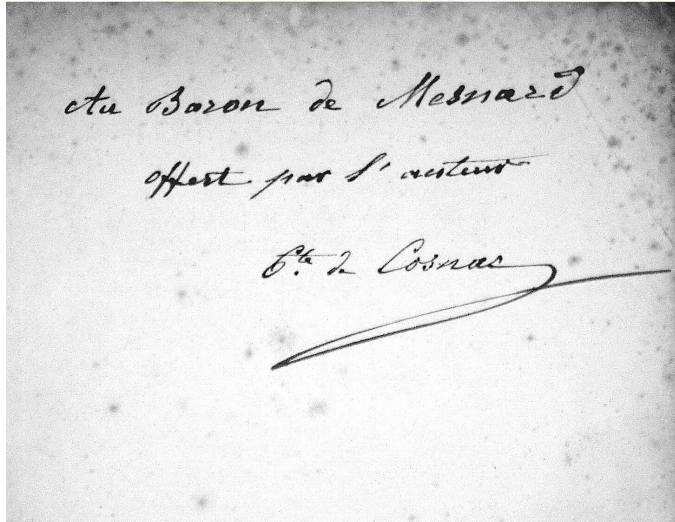 Au Baron de Mesnard
offert par l'auteur
Cte. de Cosnac